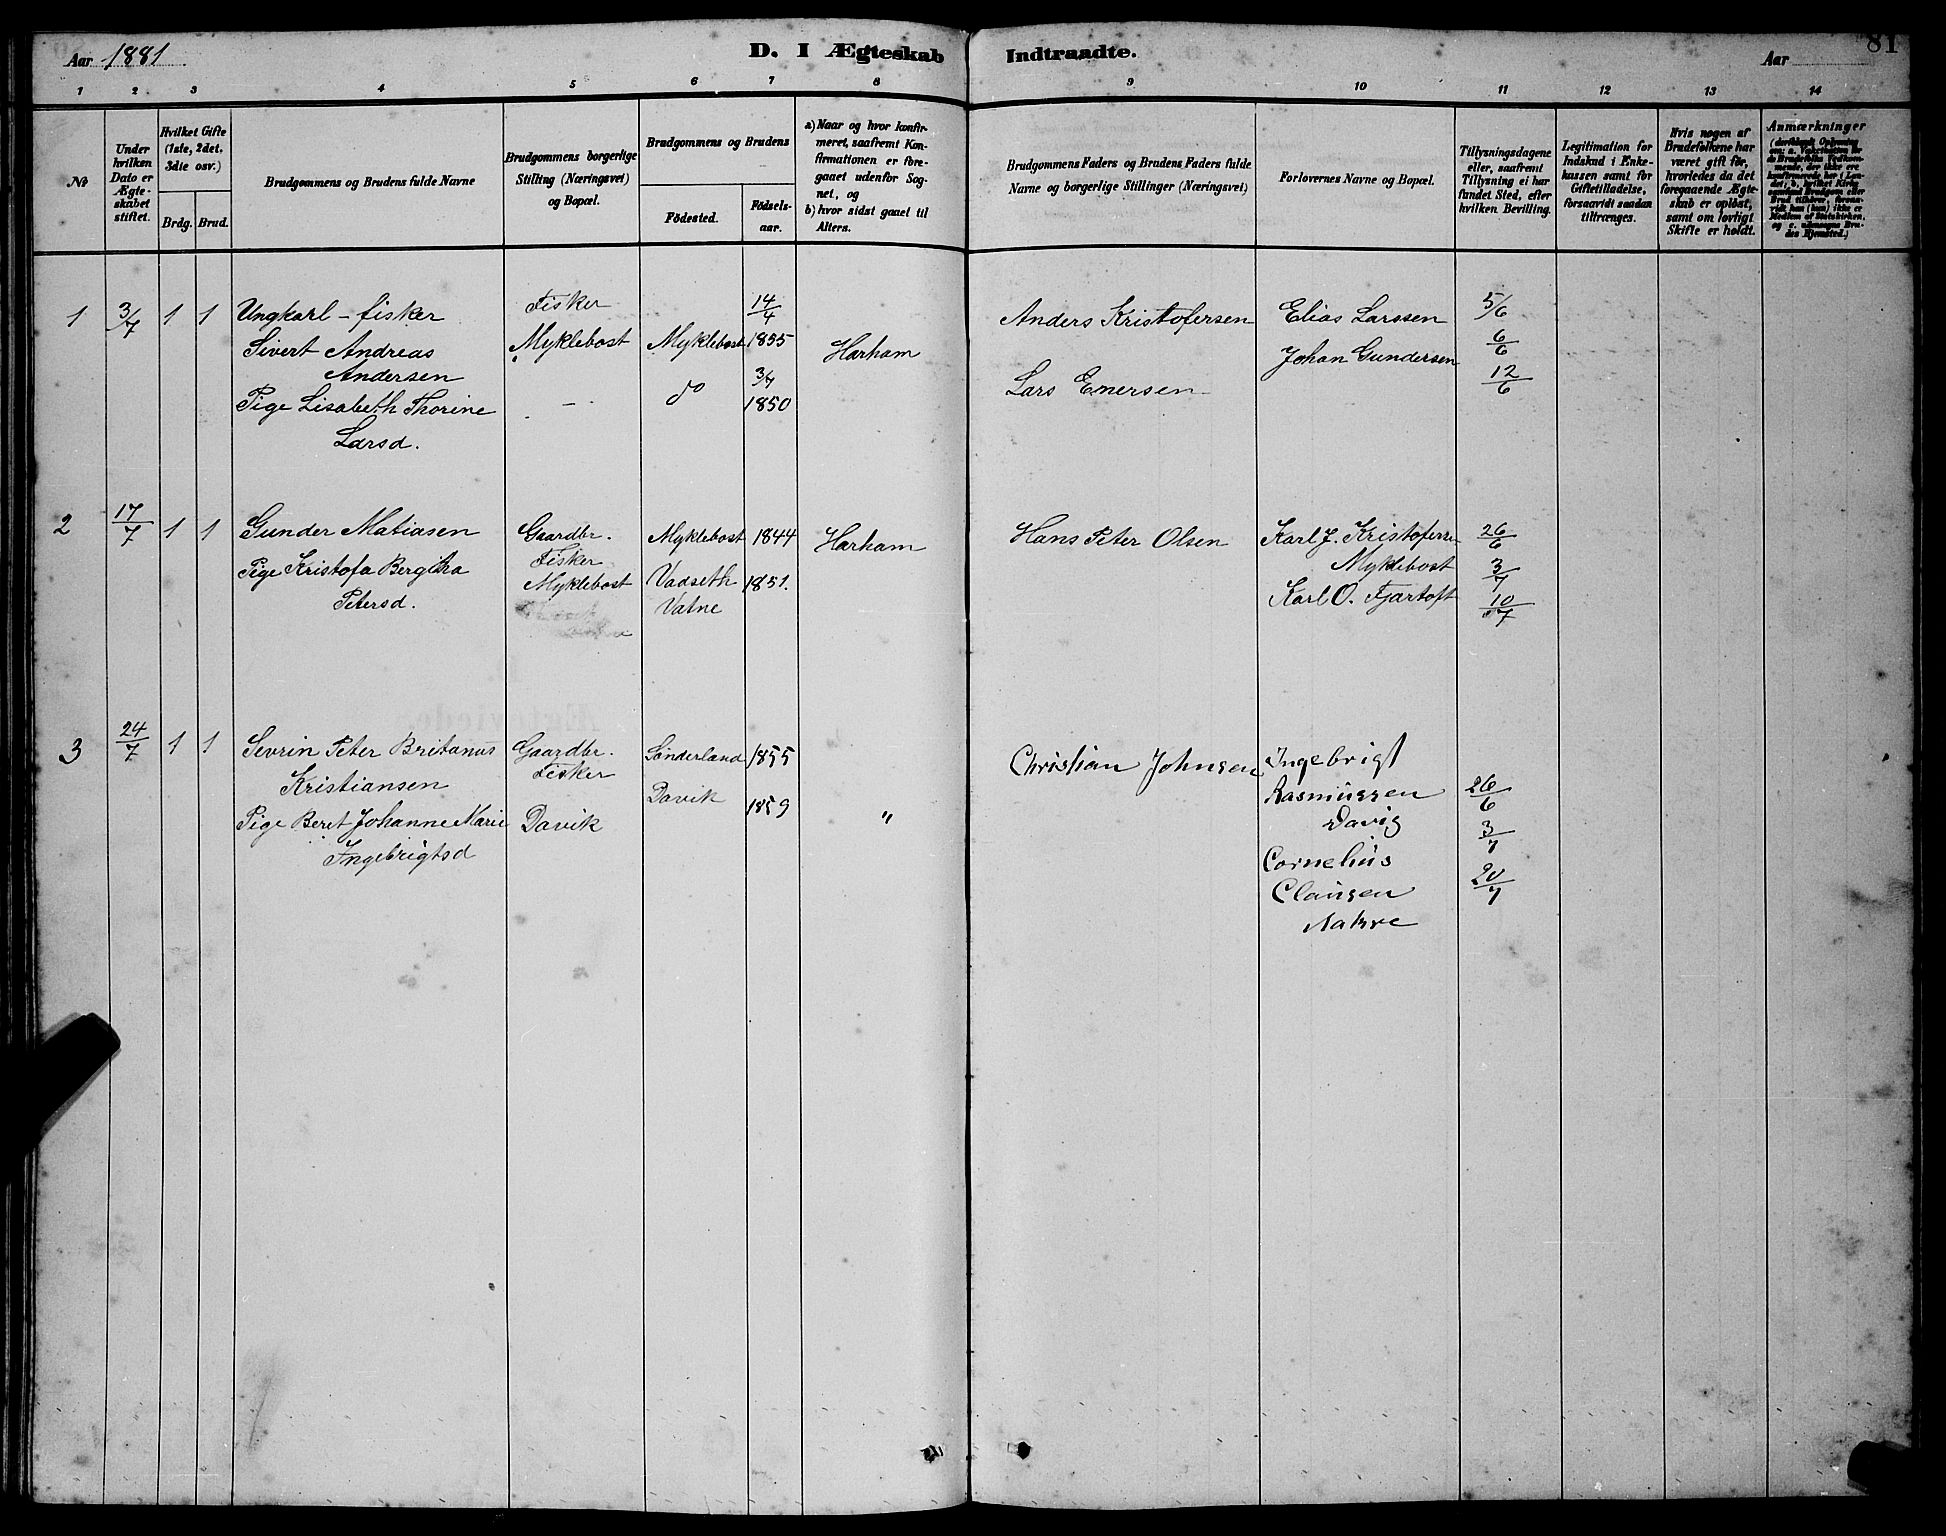 Aar 1881
D. I Ægteskab Indtraadte.
Aar
81
1 2 3 4 5 6 7 8 9 10 11 12 13 14
№
Under hvilken Dato er Ægteskabet stiftet.
Hvilket Gifte (1ste, 2det, 3die osv.)
Brdg. Brud.
Brudgommens og Brudens fulde Navne
Brudgommens borgerlige Stilling (Næringsvei) og Bopæl.
Brudgommens og Brudens
Fødested.
Fødselsaar.
a) Naar og hvor konfirmeret, saafremt Konfirmationen er foregaaet udenfor Sognet, og
b) hvor sidst gaaet til Alters.
Brudgommens Faders og Brudens Faders fulde Navne og borgerlige Stillinger (Næringsvei)
Forlovernes Navne og Bopæl.
Tillysningsdagene eller, saafremt Tillysning ei har fundet Sted, efter hvilken Bevilling.
Legitimation for Indskud i Enkekassen samt for Giftetilladelse, forsaavidt saadan tiltrænges.
Hvis nogen af Brudefolkene har været gift før, hvorledes da det foregaaende Ægteskab er opløst, samt om lovligt Skifte er holdt.
Anmærkninger
1 3/7 1 1
Ungkarl - fisker
Sivert Andreas
Andersen
Pige Lisabeth Thorine
Larsd.
Fisker
Myklebost
- -
Myklebost
do
14/4
1855
3/7
1850
Harham
Anders Kristofersen
Lars Enersen
Elias Larssen
Johan Gundersen
5/6
6/6
12/6
2 17/7 1 1
Gunder Matiasen
Pige Kristofa Bergitha
Petersd.
Gaardbr.
Fisker
Myklebost
Myklebost
Vadseth
Vatne
1844
1851.
Harham
Hans Peter Olsen
Karl J. Kristoferse
Myklebost
Karl O. Fjærtoft
26/6
3/7
10/7
3 24/7 1 1
Sevrin Peter Britanus
Kristiansen
Pige Beret Johanne Marie
Ingebrigtsd
Gaardbr.
Fisker
Davik
Sønderland
Davik
1855
1859
"
Christian Johnsen
Ingebrigt
Rasmussen
Davig
Cornelius
Clausen
Nakre
26/6
3/7
20/7